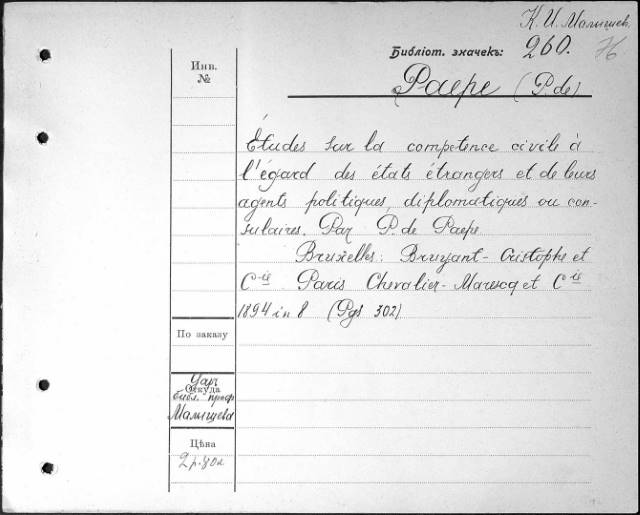 К. И. Малышев.
Библіот. значекъ: 260. 76
Инв.
№
Paepe (P. de)
Études sur la competence civile à
l'égard des états étrangers et de leurs
agents politiques, diplomatiques ou con-
sulaires. Par P. de Paepe.
Bruxelles: Bruyant-Cristophe et
C-ie Paris Chevalier-Marescq et C-ie
1894 in 8 (Pgs 302)
По заказу
Дар
Откуда
библ. проф
Малышева
Цѣна
2 р.